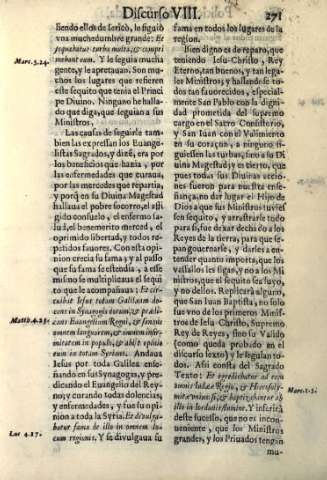 Discurso VIII. 271
siendo ellos de Iericò, le siguiò
vna muchedumbre grande: Et
sequebatur turba multa, & compri
mebant eum. Y le seguia mucha
gente, y le apretauan. Son mu-
chos los lugares que refieren
este sequito que tenia el Princi
pe Diuino. Ninguno he halla-
do que diga, que seguian a sus
Ministros.
Las causas de seguirle tam
bien las expressan los Euange-
listas Sagrados, y dizē, era por
los beneficios que hazia, por
las enfermedades que curaua,
por las mercedes que repartia,
y porq̃ en su Diuina Magestad
hallaua el pobre socorro, el afli
gido consuelo, el enfermo sa-
lud, el benemerito merced, el
oprimido libertad, y todos re-
petidos fauores. Con esta opi-
nion crecia su fama; y al passo
que su fama se estendia, a esse
mismo se multiplicaua el sequi
to que le acompañaua: Et cir-
cuibat Iesus totam Galilæam do-
cens in Synagogis eorum, & prædi-
cans Euangelium Regni, & sanans
omnem languorem, & omnem infir-
mitatem in populo, & abijt opinio
eius in totam Syriam. Andaua
Iesus por toda Galilea ense-
ñando en sus Synagogas, y pre-
dicando el Euangelio del Rey-
no; y curando todas dolencias,
y enfermedades, y fue su opi-
nion a toda la Syria. Et diuulga-
batur fama de illo in omnem lo-
cum regionis. Y se divulgaua su
Marc. 5. 24.
Matth. 4. 23.
Luc. 4. 37.
fama en todos los lugares de la
region.
Bien digno es de reparo, que
teniendo Iesu-Christo, Rey
Eterno, tan buenos, y tan lega-
les Ministros; y hallandose to-
dos tan fauorecidos, especial-
mente San Pablo con la digni-
dad prometida del supremo
cargo en el Sacro Consistorio,
y San Iuan con el Valimiento
en su coraçon, a ninguno si-
guiessen las turbas, sino a su Di
uina Magestad; y es cierto, que
pues todas sus Diuinas accio-
nes fueron para nuestra ense-
ñança, no dar lugar el Hijo de
Dios a que sus Ministros tuuies
sen sequito, y arrastrarle todo
para si, fue dexar dechado a los
Reyes de la tierra, para que se-
pan gouernarle, y darles a en-
tender quanto importa, que los
vassallos les sigan, y no a los Mi
nistros, que el sequito sea suyo,
y no dellos. Replicarà alguno,
que San Iuan Baptista, no solo
fue vno de los primeros Minis-
tros de Iesu-Christo, Supremo
Rey de Reyes, sino su Valido
(como queda probado en el
discurso sexto) y le seguian to-
dos. Assi consta del Sagrado
Texto: Et egrediebatur ad eum
omnis Iudææ Regio, & Hierosoly-
mitæ vniuersi, & baptizabantur ab
illo in Iordanis flumine. Y inferirà
deste sucesso, que no es incon-
ueniente, que los Ministros
grandes, y los Priuados tengan
mu-
Marc. 1. 5.